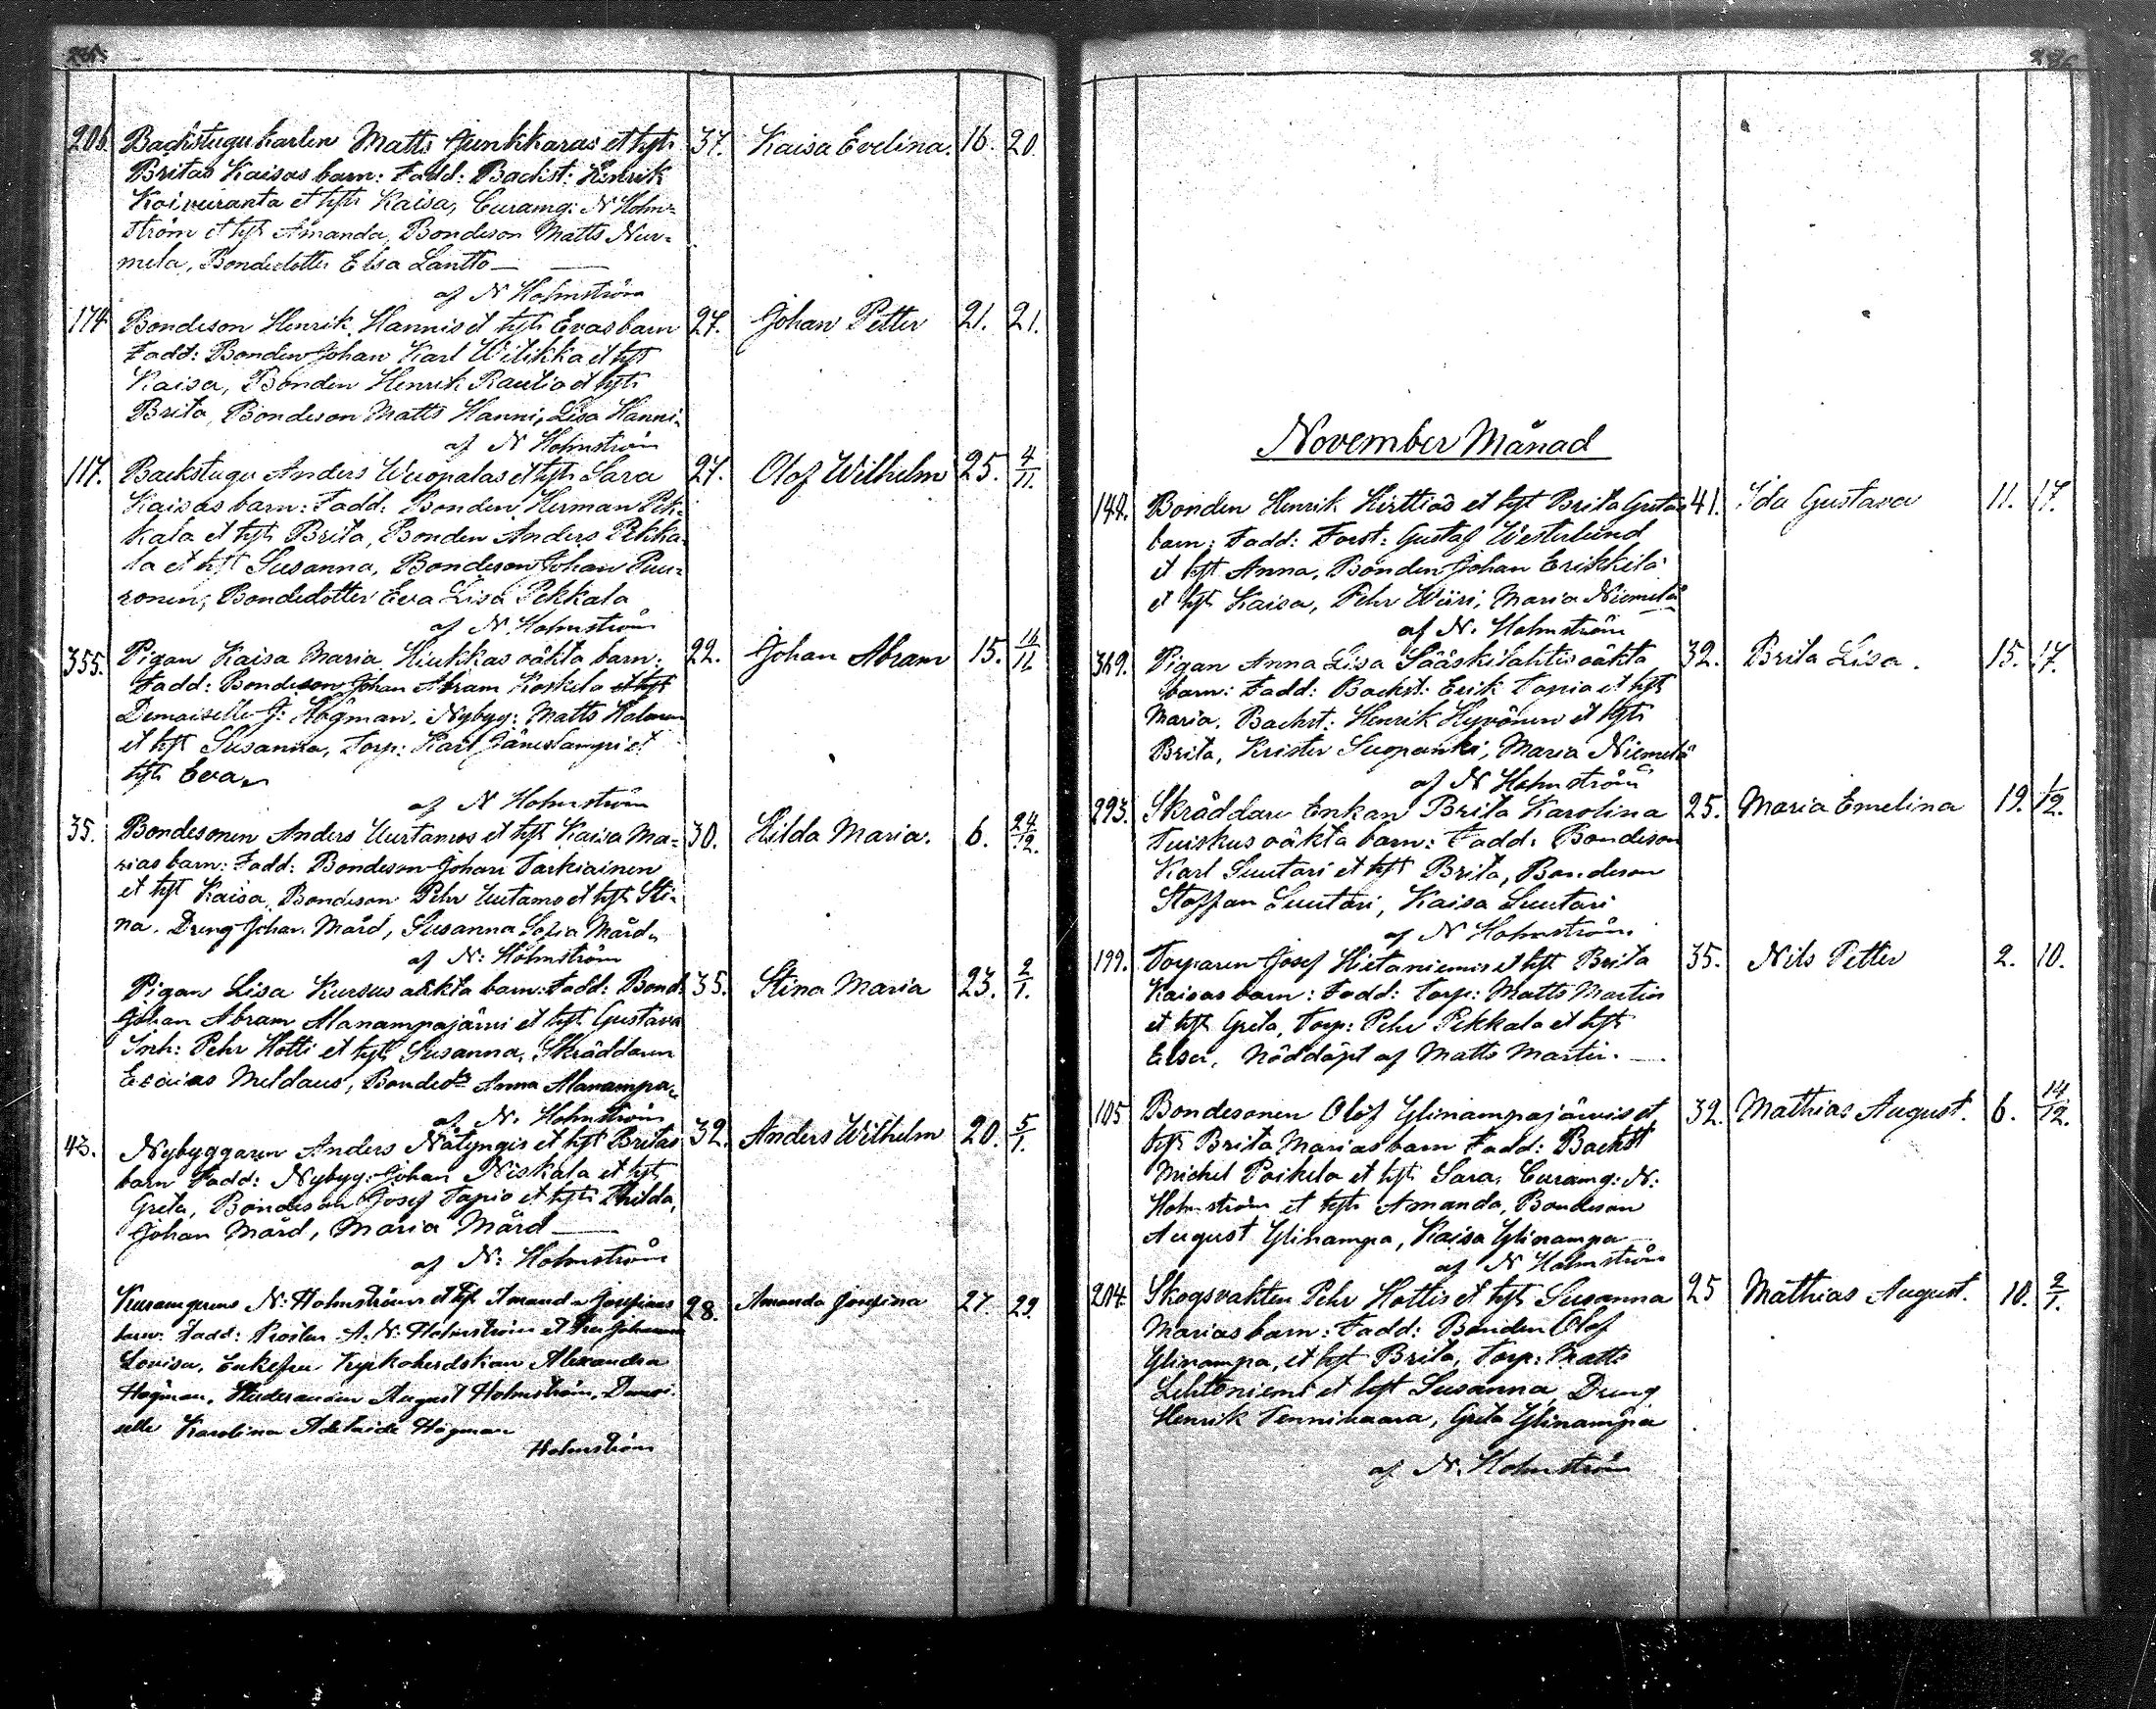 285.
206. Backstugukarlen Matts Junkkaras et hſtr 37. Kaisa Evelina. 16. 20.
Britas Kaisas barn: Fadd: Backst: Henrik
Koivuranta et hſtr Kaisa, Curamg: N Holm=
ström et hſtr Amanda, Bondeson Matts Nur=
mela, Bondedotter Elsa Lantto —
af N Holmström
174. Bondeson Henrik Hannis et hſtr Evas barn 27. Johan Petter 21. 21.
Fadd: Bonden Johan Karl Wilikka et hſtr
Kaisa, Bonden Henrik Rautio et hſtr
Brita, Bondeson Matts Hanni, Lisa Hanni.
af N Holmström
117. Backstugu Anders Wuopalas et hſtr Sara 27. Olof Wilhelm 25. 4/11.
Kaisas barn: Fadd: Bonden Herman Pek=
kala et hſtr Brita, Bonden Anders Pekka=
la et hſtr Susanna, Bondeson Johan Puu=
ronen, Bondedotter Eva Lisa Pekkala
af N. Holmström
355. Pigan Kaisa Maria Hiukkas oäkta barn: 22. Johan Abram 15. 16/11
Fadd: Bondeson Johan Abram Koskela et hſtr
Demoiselle J: Högman, Nybyg: Matts
et hſtr Susanna, Torp: Karl Jäneslampi et
hſtr Eva.
af N Holmström
35. Bondesonen Anders Uurtamos et hſtr Kaisa Ma= 30. Hilda Maria. 6. 24/12.
rias barn: Fadd: Bondeson Johan Tarkiainen
et hſtr Kaisa, Bondeson Pehr Uutamo et hſtr Sti=
na, Dreng Johan Mård, Susanna Sofia Mård.
af N: Holmström
Pigan Lisa Kursus oäkta barn: Fadd: Bond. 35. Stina Maria 23. 2/1.
Johan Abram Alanampajärvi et hſtr Gustava
Inh: Pehr Hotti et hſtr Susanna, Skräddaren
Esaias Meldaus, Bonded:r Anna Alanampa.
af N. Holmström
43. Nybyggaren Anders Nätyngis et hſtr Britas 32. Anders Wilhelm 20. 5/1.
barn Fadd: Nybyg: Johan Niskala et hſtr
Greta, Bondeson Josef Tapio et hſtr Thilda,
Johan Mård, Maria Mård —
af N: Holmström
N: Holmströms et hſtr Amanda Josefinas 28. Amanda Josefina 27. 29.
barn: Fadd: Prosten A. N: Holmström et Fru Johanna
Lovisa, Enkefru Kyrkoherdskan Alexandra
Högman, Studeranden August Holmström, Demoi
selle Karolina Adelaide Högman
Holmström
286.
November Månad
Bonden Henrik Kirttiös et hſtr Brita Gretas 41. Ida Gustava 11. 17.
barn: Fadd: Forst: Gustaf Westerlund
et hſtr Anna, Bonden Johan Erikkilä
et hſtr Kaisa, Pehr Wiiri, Maria Niemelä
af N. Holmström
369. Pigan Anna Lisa Sääskilahtis oäkta 32. Brita Lisa. 15. 17.
barn: Fadd: Backst: Erik Tapio et hſtr
Maria, Backst: Henrik Hyvönen et hſtr
Brita, Krister Suopanki, Maria Niemelä
af N Holmström
293. Skräddare Enkan Brita Karolina 25. Maria Emelina 19. 1/12.
Tuiskus oäkta barn: Fadd: Bondeson
Karl Suutari et hſtr Brita, Bondeson
Staffan Suutari, Kaisa Suutari
af N Holmström.
199. Torparen Josef Hietaniemis et hſtr Brita 35. Nils Petter 2. 10.
Kaisas barn: Fadd: Torp: Matts Martin
et hſtr Greta, Torp: Pehr Pekkala et hſtr
Elsa, Nöddöpt af Matts Martin. —
105 Bondesonen Olof Ylinampajärvis et 32. Mathias August. 6. 14/12.
hſtr Brita Marias barn Fadd: Backst
Michel Poikela et hſtr Sara, Curamg: N:
Holmström et hſtr Amanda, Bondeson
August Ylinampa, Kaisa Ylinampa
af N Holmström
204. Skogsvakten Pehr Hottis et hſtr Susanna 25 Mathias August. 10. 2/1.
Marias barn: Fadd: Bonden Olof
Ylinampa, et hſtr Brita, Torp: Matts
Lehtoniemi et hſtr Susanna, Dreng
Henrik Tennivaara, Greta Ylinampa
af N. Holmström